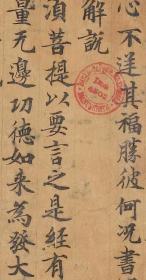 心不逆其福勝彼何况書
解説
湏菩提以要言之是經有
量无邊功德如来為發大